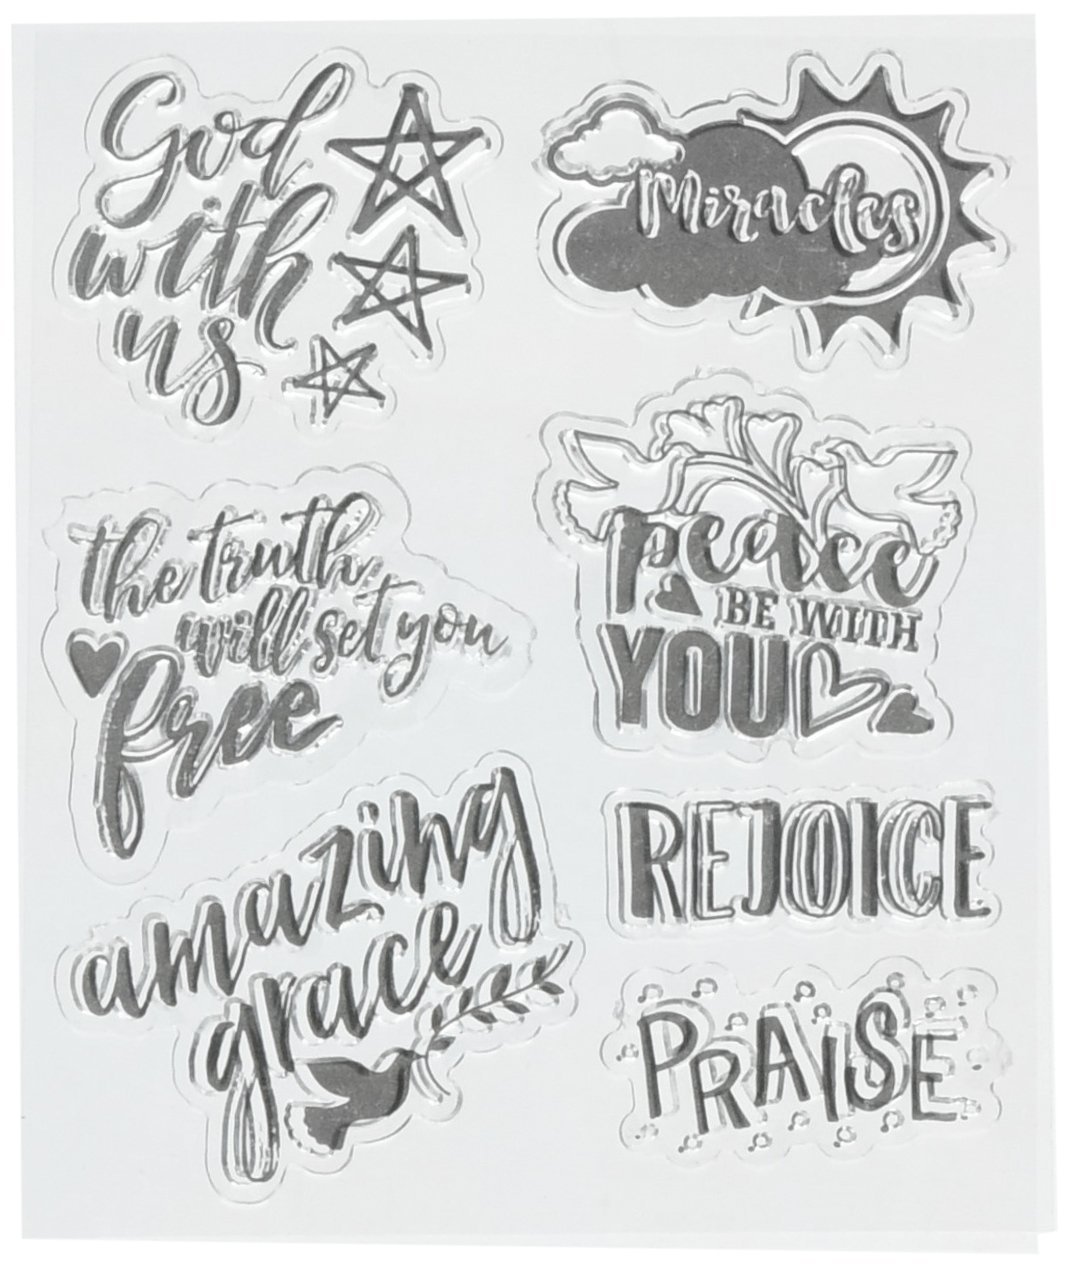 God
with
us
Miracles
the truth
will set you
free
peace
BE WITH
YOU
amazing
grace
REJOICE
PRAISE